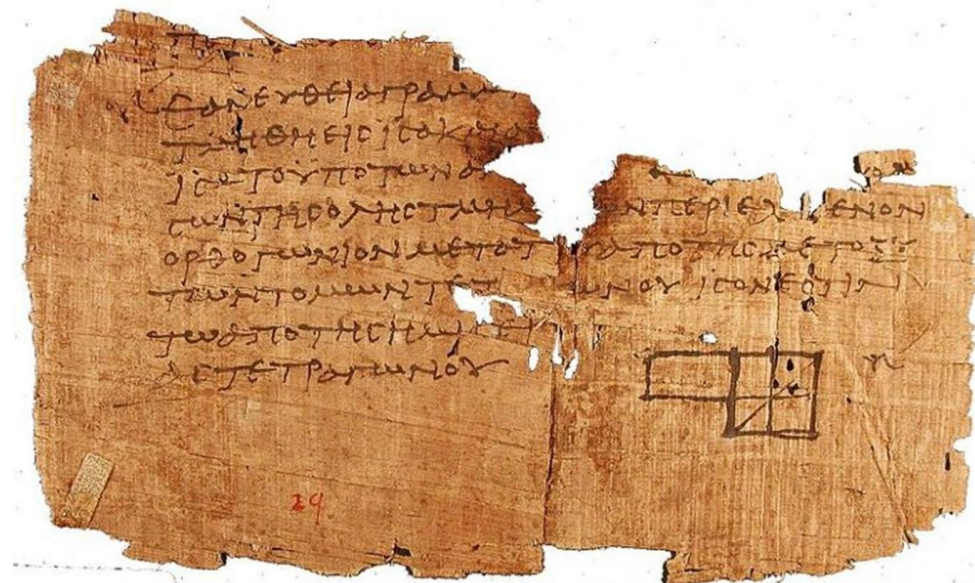 ΕΑΝ ΕΥΘΕΙΑ ΓΡΑΜΜ
ΤΜΗΘΗ ΕΙϹ ΙϹΑ Κ
ΙϹΑ ΤΟ ΥΠΟ ΤΩΝ ΑΝ
ΙϹΩΝ ΤΗϹ ΟΛΗϹ ΤΜΗ Ν ΠΕΡΙΕΧ ΕΝΟΝ
ΟΡΘΟΓΩΝΙΟΝ ΜΕΤΑ ΤΟΥ ΑΠΟ ΤΗϹ ΜΕΤΟΞΥ
ΤΩΝ ΤΟΜΩΝ ΤΕΤ ΩΝΟΥ ΙϹΟΝ ΕϹΤΙΝ
ΤΩ ΑΠΟ ΤΗϹ ΗΜΙϹΕΙ
ΑϹ ΤΕΤΡΑΓΩΝΟΥ
29